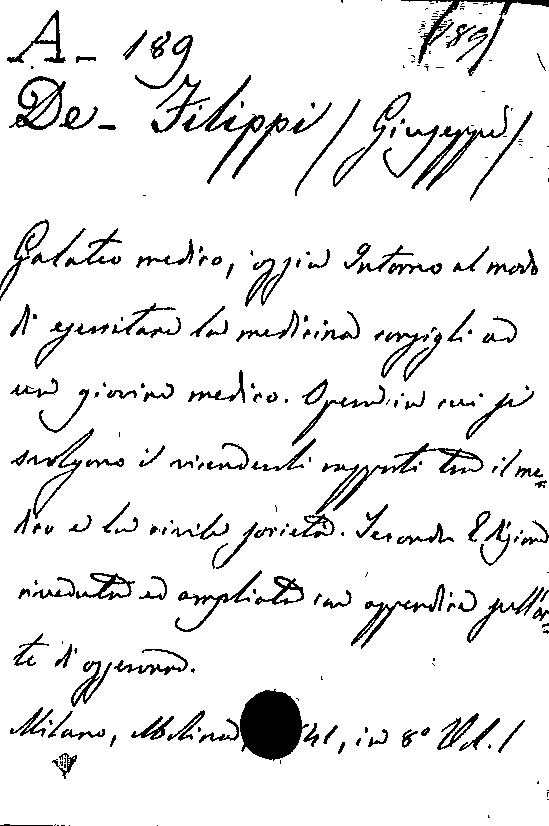 A- 189 (189)
De- Filippi / Giuseppe /
Galateo medico, ossia Intorno al modo
di esercitare la medicina consigli ad
un giovine medico. Opera in cui si
svolgono i vicendevoli rapporti tra il me-
dico e la civile società. Seconda Edizione
riveduta ed ampliata con appendice sull'ar-
te di osservare.
Milano, Molina, 41, in 8° Vol. 1